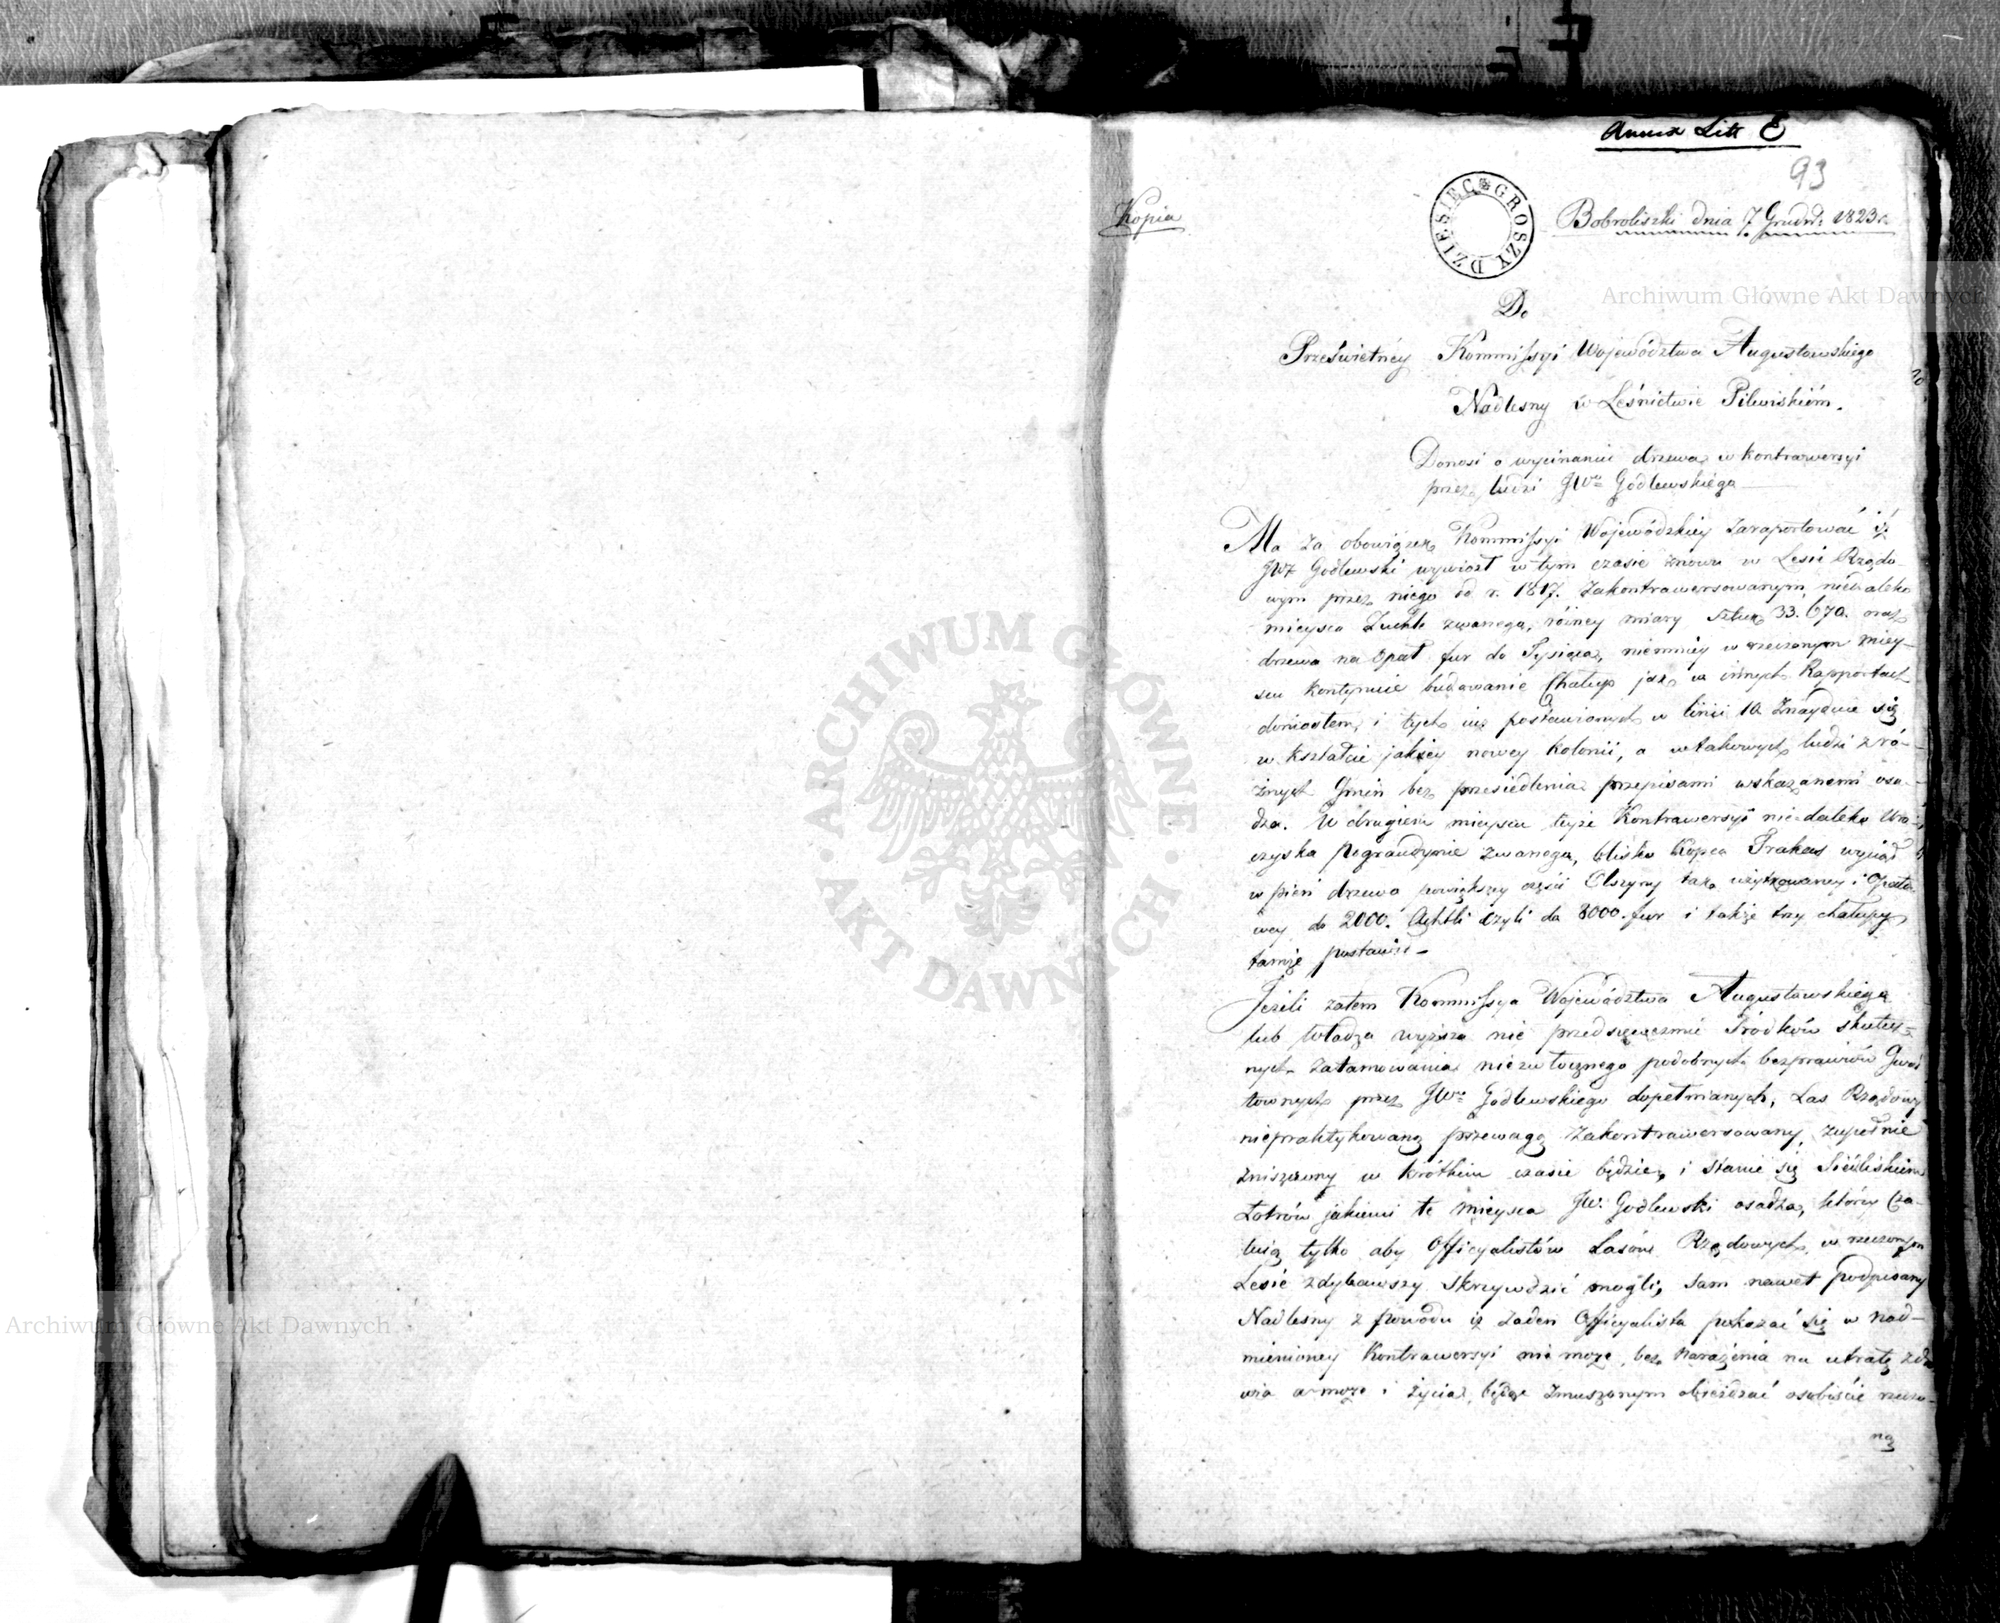 Annex Litt E
93
Kopia
DZIESIĘC GROSZY
Bobroliszki dnia 7 Grudn. 1823 r.
Do
Prześwietney Kommissyi Województwa Augustowskiego
Nadleśny w Leśnictwie Pilwiskiém.
Donosi o wycinaniu drzewa w kontrawersyi
przez ludzi JWo Godlewskiego
Ma za obowiązek Kommissyi Wojewódzkiey zaraportować iż
JWż Godlewski wywiozł w tym czasie znowu w Lesie Rządo-
wym przez niego od r. 1817. zakontrawersowanym, niedaleko
mieysca zwanego, rożney miary sztuk 33.670. oraz
drzewa na Opał fur do Tysiąca, niemniey w rzeczonym miey-
scu kontynuie budowanie Chałup jak w innych Rapportach
doniosłem, i tych iuż postawionych w linii 10 znayduie się
w kształcie jakiey nowey kolonii, a w takowych ludzi z ró-
żnych Gmin bez przesiedlenia przepisami wskazanemi osa-
dza. W drugiem mieyscu teyże Kontrawersyi niedaleko Uro-
czyska zwanego, blisko Kopca Trakas wyciął
w pień drzewa większey części Olszyny tak użytkowey i Opało-
wey do 2000. Achtli czyli do 8000. fur i także trzy chałupy
tamże postawił –
Jeżeli zatem Kommissya Województwa Augustowskiego
lub Władza wyższa nie przedsięweźmie Środków skutecz-
nych zatamowania niezwłocznego podobnych bezprawiów Gwał
townych przez JWo Godlewskiego dopełnianych, Las Rządowy
niepraktykowaną przewagą zakontrawersowany, zupełnie
zniszczony w krótkim czasie będzie, i stanie się Siedliskiem
Łotrów jakiemi te mieysca JW. Godlewski osadza, którzy Cza-
tuią tylko aby Officyalistów Lasów Rządowych w rzeczonym
Lesie zdybawszy skrzywdzić mogli, sam nawet podpisany
Nadleśny z powodu iż żaden Officyalista pokazać się w nad-
mienioney Kontrawersyi nie może, bez narażenia na utratę zdro
wia a może i życia, będąc zmuszonym obieżdżać osobiście rzeczo-
ną
ARCHIWUM GŁÓWNE AKT DAWNYCH
Archiwum Główne Akt Dawnych
Archiwum Główne Akt Dawnych